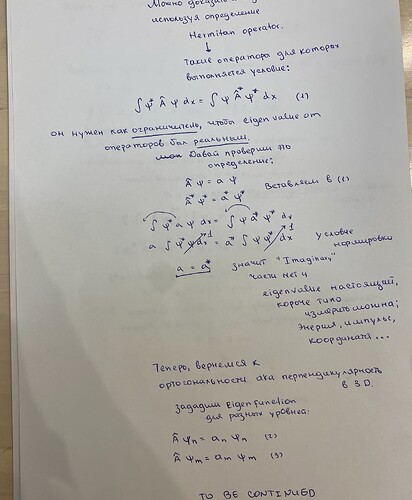 Можно доказать
используя определение
Hermitan operator.
↓
Такие оператора для которых
выполняется условие:
∫ ψ* Â ψ dx = ∫ ψ Â* ψ* dx (1)
он нужен как ограничитель, чтобы eigen value от
операторов был реальным.
Давай проверим по
определение:
Â ψ = a ψ
Вставляем в (1)
Â* ψ* = a* ψ*
∫ ψ* a ψ dx = ∫ ψ a* ψ* dx
a ∫ ψ* ψ dx 1 = a* ∫ ψ ψ* dx 1 условие
нормировки
a = a* значит "Imaginary"
части нет ч
eigenvalue настоящий,
короче типо
измерить можна;
Энергия, импульс,
координата ...
Теперь, вернемся к
ортогональности aka перпендикулярность
в 3D.
зададим Eigenfunction
для разных уровней:
Â ψn = an ψn (2)
Â ψm = am ψm (3)
TO BE CONTINUED